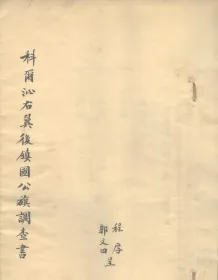 科爾沁右翼後鎮國公旗調查書
程序
郭文田 呈